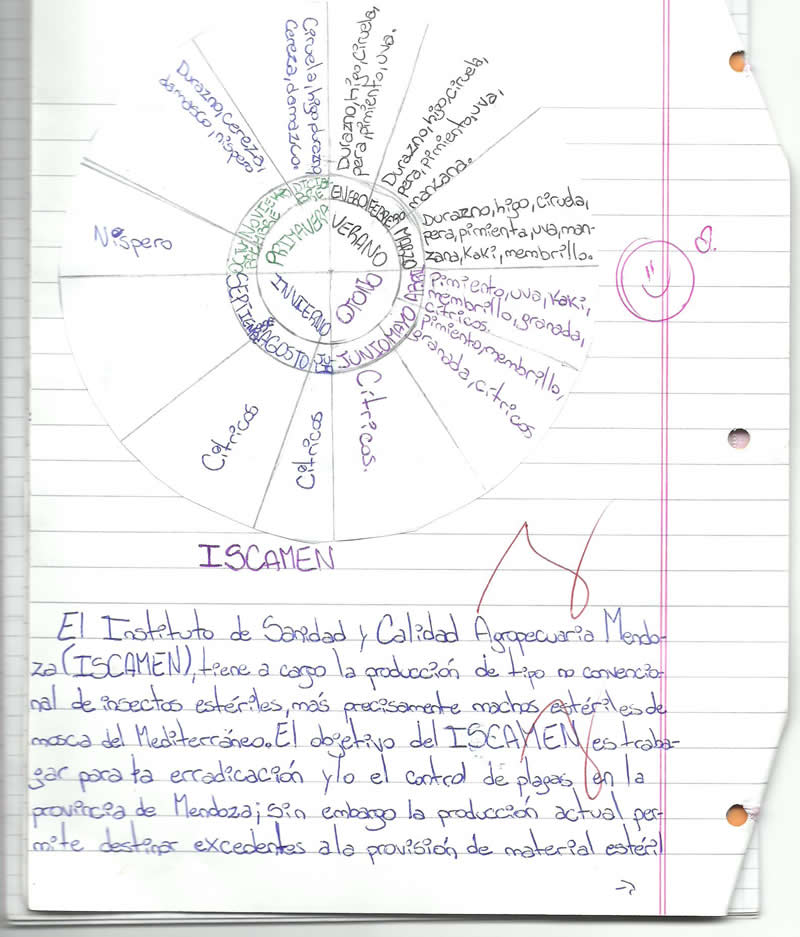 Durazno, cereza,
damasco, níspero
Ciruela, higo, durazno
Cereza, damazco.
Durazno, higo, ciruela,
pera, pimiento, uva.
Durazno, higo, ciruela,
pera, pimiento, uva,
manzana.
Durazno, higo, ciruela,
pera, pimienta, uva, man-
zana, Kaki, membrillo.
Pimiento, uva, Kaki,
membrillo, granada,
cítricos.
pimiento, membrillo,
granada, cítricos
Cítricos.
Cítricos
Cítricos
Níspero
ENERO
FEBRERO
MARZO
ABRIL
MAYO
JUNIO
AGOSTO
PRIMAVERA
VERANO
OTOÑO
INVIERNO
ISCAMEN
El Instituto de Sanidad y Calidad Agropecuaria Mendo-
za (ISCAMEN), tiene a cargo la producción de tipo no convencio-
nal de insectos estériles, más precisamente machos estériles de
mosca del Mediterráneo. El objetivo del ISCAMEN es traba-
gar para ta erradicación y/o el control de plagas en la
provincia de Mendoza; sin embargo la producción actual per-
mite destinar excedentes a la provisión de material estéril